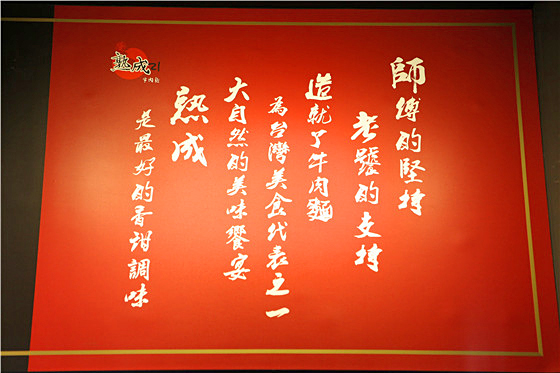 師傅的堅持
老饕的支持
造就了牛肉麵
為台灣美食代表之一
大自然的美味饗宴
熟成
是最好的香甜調味
熟成